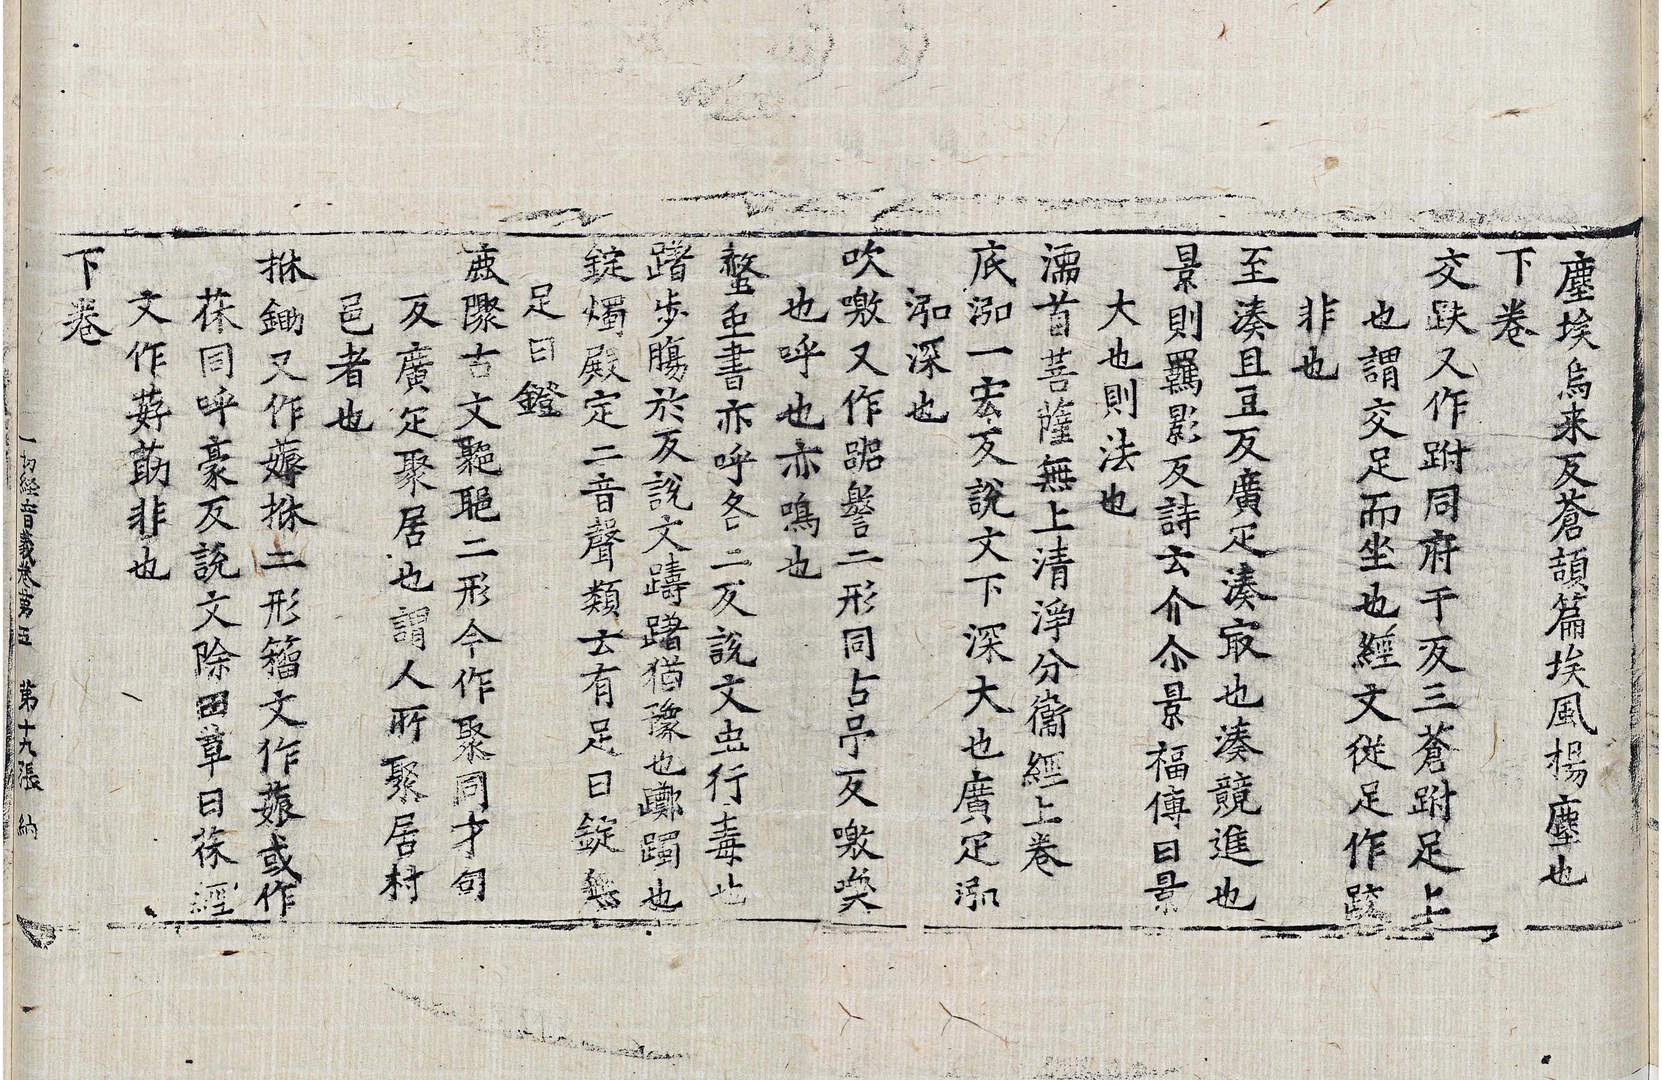 塵埃烏来反蒼頡篇埃風揚塵也
下卷
交趺又作跗同府于反三蒼跗足上
也謂交足而坐也經文從足作跨
非也
至湊且豆反廣疋湊冣也湊競進也
景則羈影反詩云介尒景福傳曰景
大也則法也
濡首菩薩無上清淨分衞經上卷
底泓一宏反說文下深大也廣疋泓
泓深也
吹噭又作𧮙謷二形同古弔反噭喚
也呼也亦鳴也
螫虫書亦呼各二反說文虫行毒也
躇步腸於反說文躊躇猶豫也躑躅也
錠燭殿定二音聲類云有足曰錠無
足曰鐙
鹿驟古文𩦺䎼二形今作聚同才句
反廣疋聚居也謂人所聚居村
邑者也
㧡鋤又作薅㧡二形籀文作䓳或作
茠同呼豪反說文除田草曰茠經
文作䓴䓤非也
下卷
一切経音義卷第五 第十九張 納